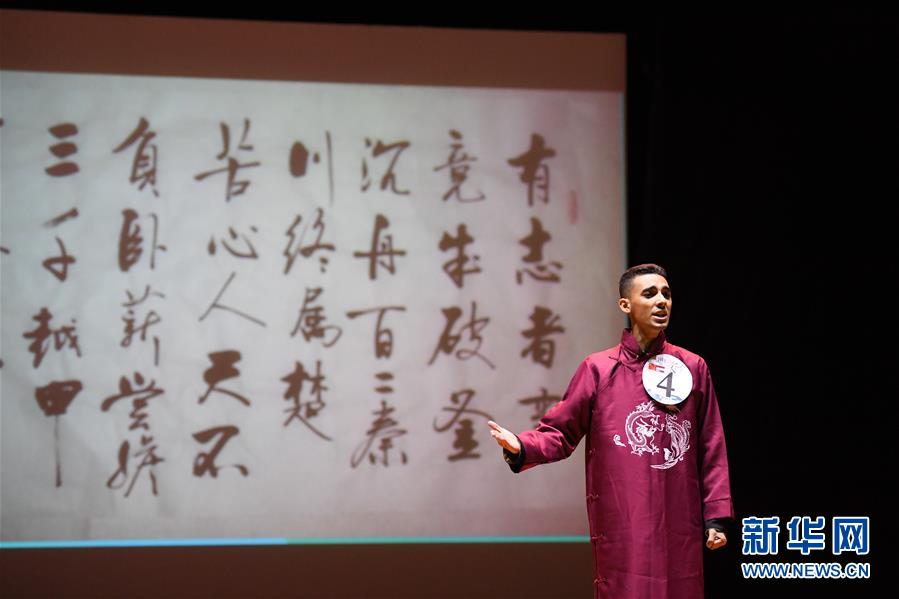 有志者
竟成破釜
沉舟百二秦
川终属楚
苦心人天不
負卧薪嘗膽
三千越甲
4
新华网
WWW.NEWS.CN